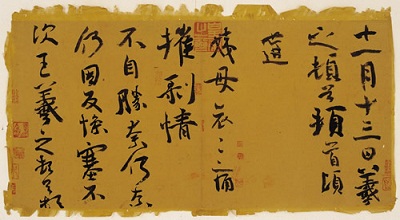 十一月十三日羲
之頓首頓首頃
遘
姨母哀々痛
摧剝情
不自勝奈何奈
何因反慘塞不
次王羲之頓首頓